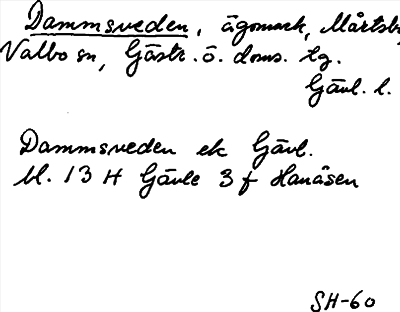 Dammsveden, ägomark, Mårtsbo,
Valbo sn, Gästr. ö. doms. tg.
Gävl. l.
Dammsveden ek Gävl.
bl. 13 H Gävle 3 f Hanåsen
SH-60